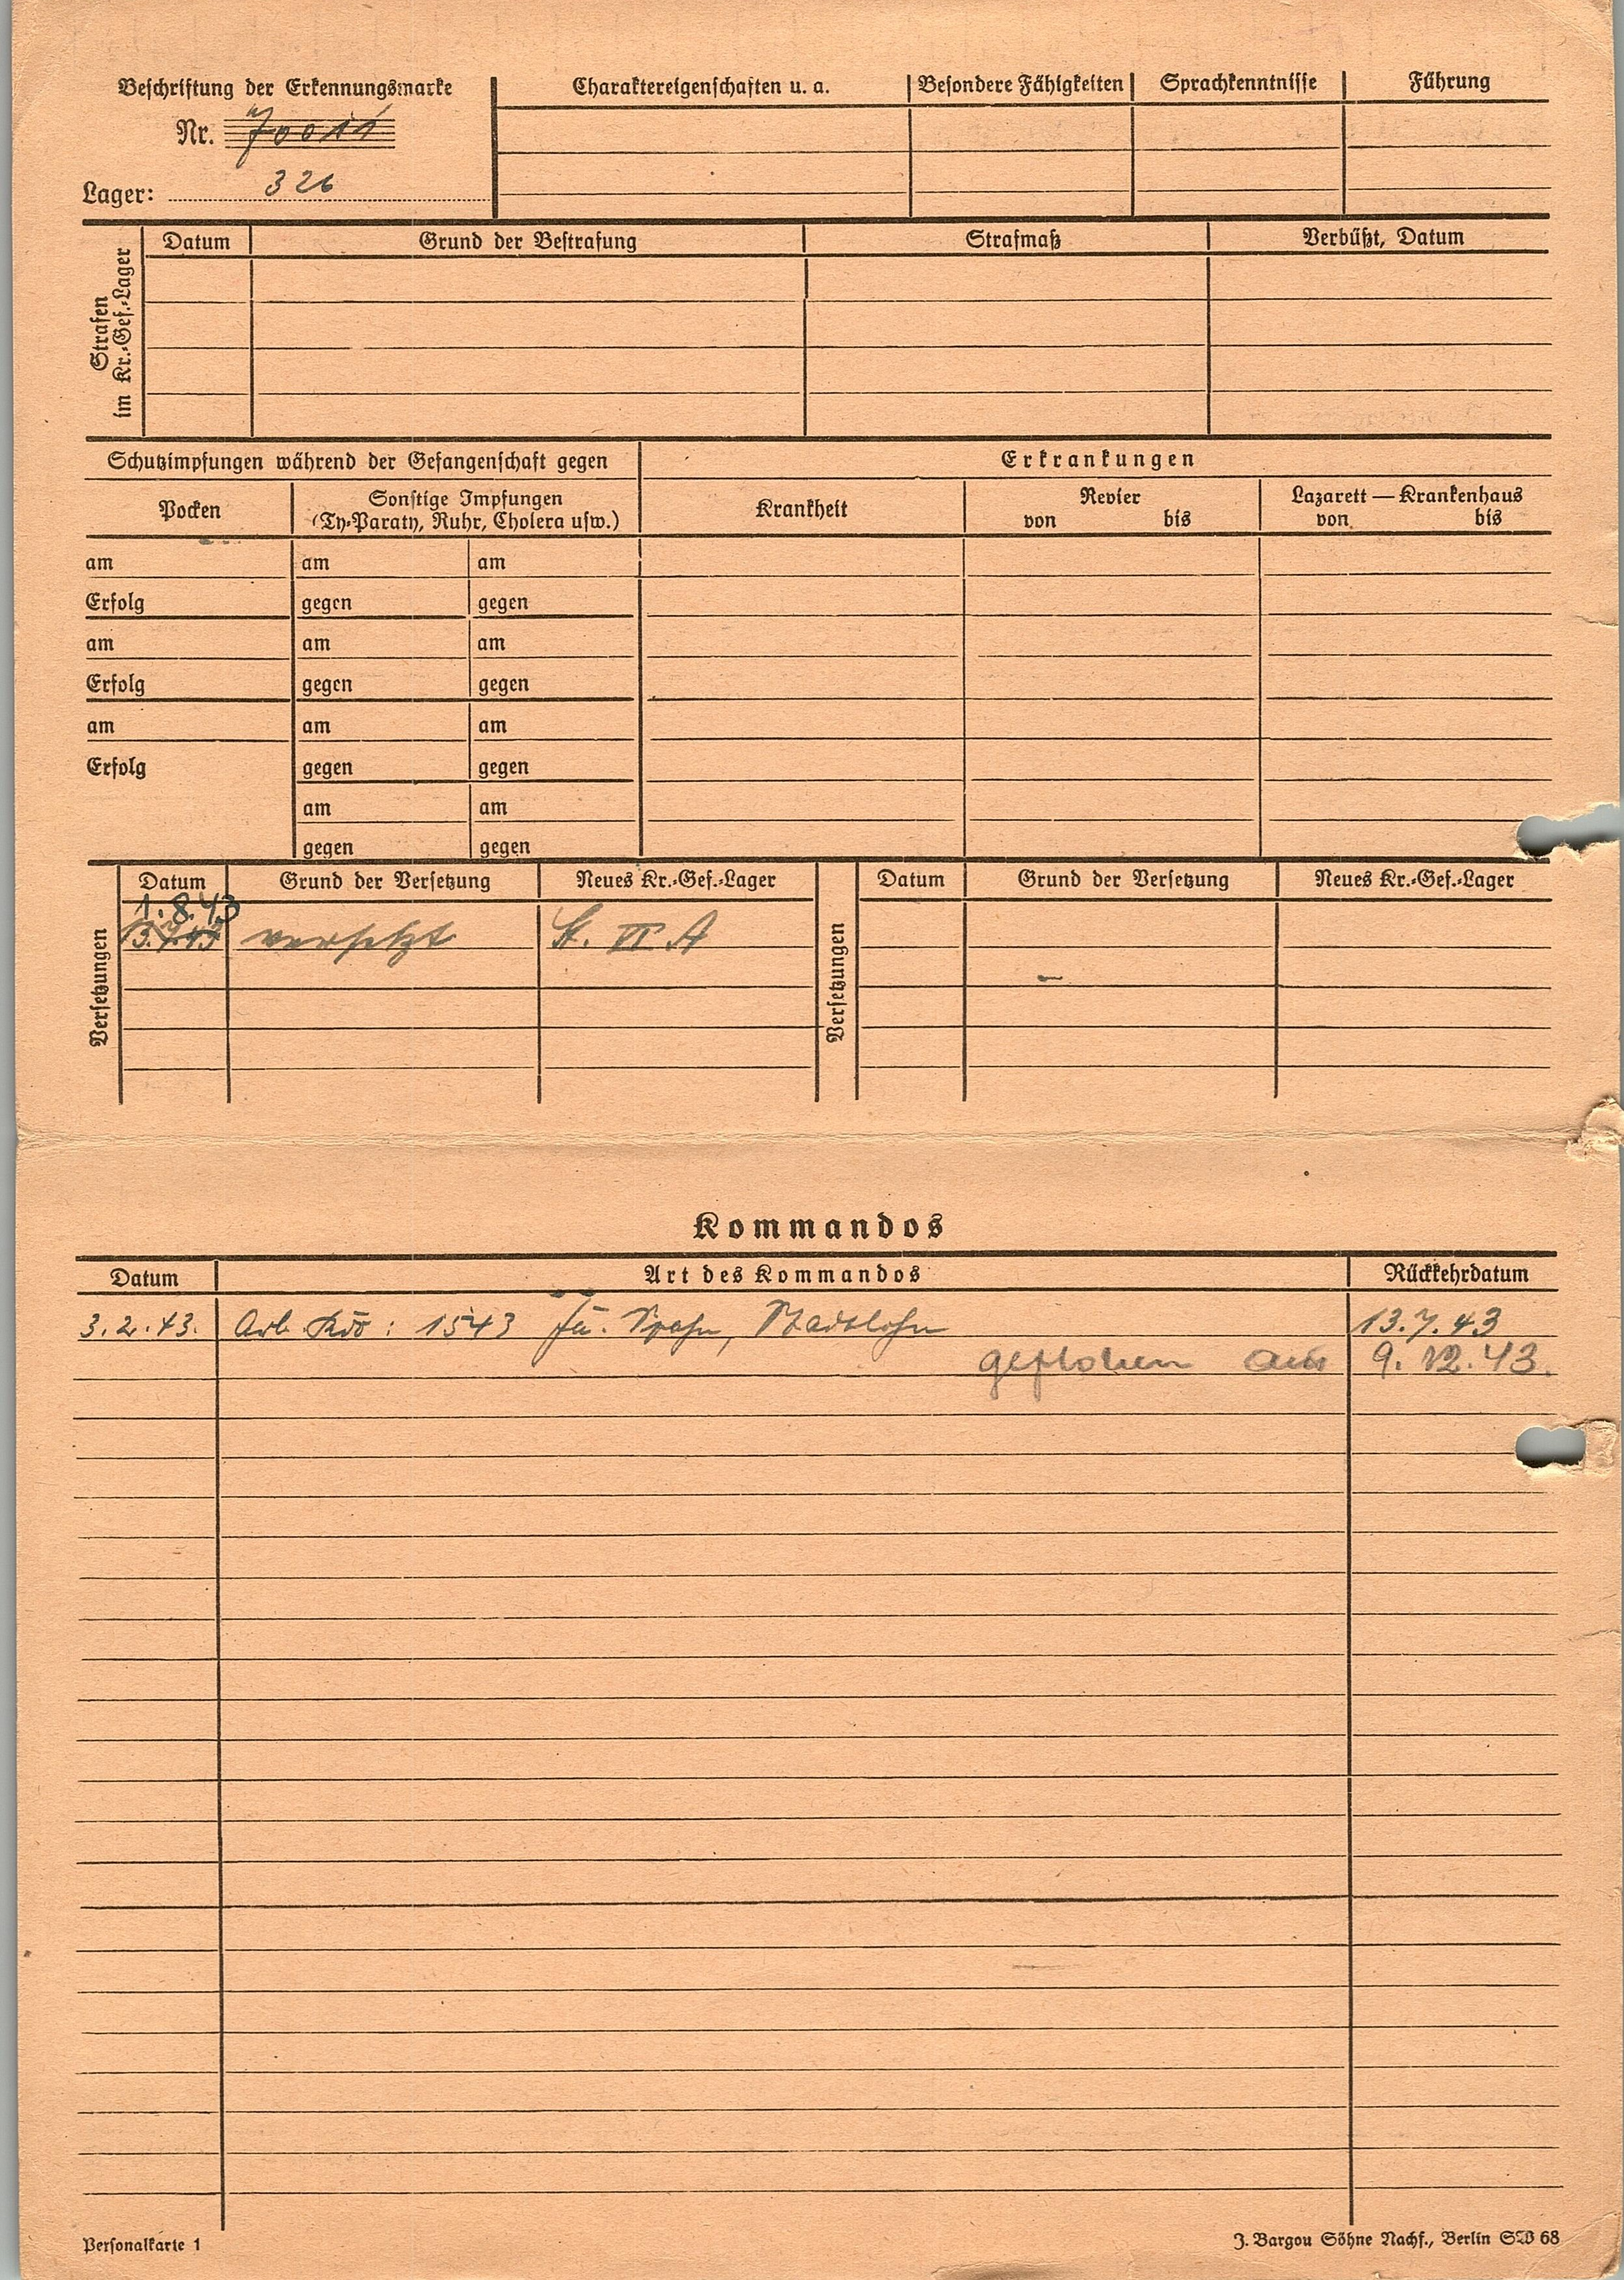 Beschriftung der Erkennungsmarke
Nr. 70011
Lager: 326
Charaktereigenschaften u. a. Besondere Fähigkeiten Sprachkenntnisse Führung
Strafen im Kr.-Gef.-Lager
Datum Grund der Bestrafung Strafmaß Verbüßt, Datum
Schutzimpfungen während der Gefangenschaft gegen Erkrankungen
Pocken Sonstige Impfungen (Ty-Paraty, Ruhr, Cholera usw.) Krankheit Revier von bis Lazarett — Krankenhaus von bis
am am am
Erfolg gegen gegen
am am am
Erfolg gegen gegen
am am am
Erfolg gegen gegen
am am
gegen gegen
Versetzungen
Datum Grund der Versetzung Neues Kr.-Gef.-Lager
1. 8. 43
13.7.43 versetzt St. VI A
Versetzungen
Datum Grund der Versetzung Neues Kr.-Gef.-Lager
Kommandos
Datum Art des Kommandos Rückkehrdatum
3.2.43. Arb. Kdo : 1543 Fa. Spahn, Stadtlohn 13.7.43
geflohen am 9. 12. 43.
Personalkarte 1
J. Bargou Söhne Nachf., Berlin SW 68